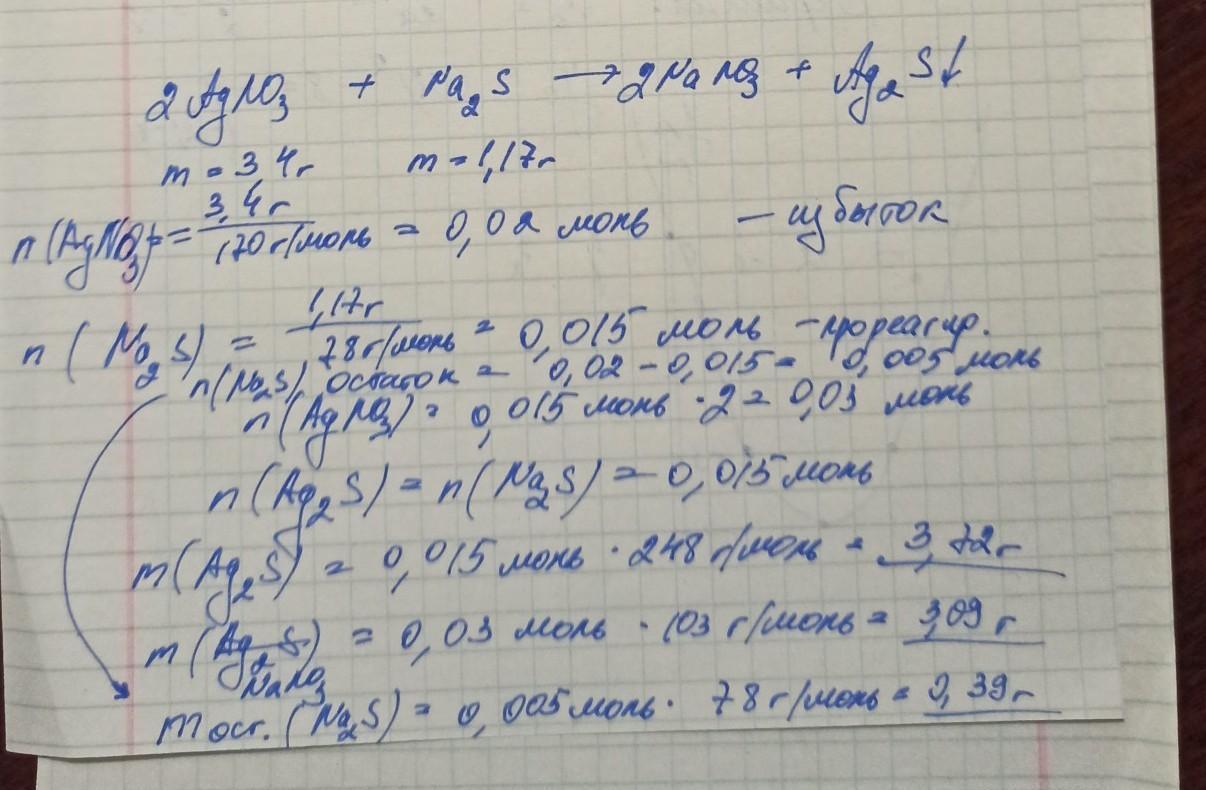 2AgNO₃ + Na₂S → 2NaNO₃ + Ag₂S↓
m = 3,4г m = 1,17г
n(AgNO₃) = 3,4г / 170 г/моль = 0,02 моль - избыток
n(Na₂S) = 1,17г / 78 г/моль = 0,015 моль - прореагир.
n(Na₂S) остаток = 0,02 - 0,015 = 0,005 моль
n(AgNO₃) = 0,015 моль · 2 = 0,03 моль
n(Ag₂S) = n(Na₂S) = 0,015 моль
m(Ag₂S) = 0,015 моль · 248 г/моль = 3,72г
m(Ag₂S) = 0,03 моль · 103 г/моль = 3,09 г
NaNO₃
m ост. (Na₂S) = 0,005 моль · 78 г/моль = 0,39г